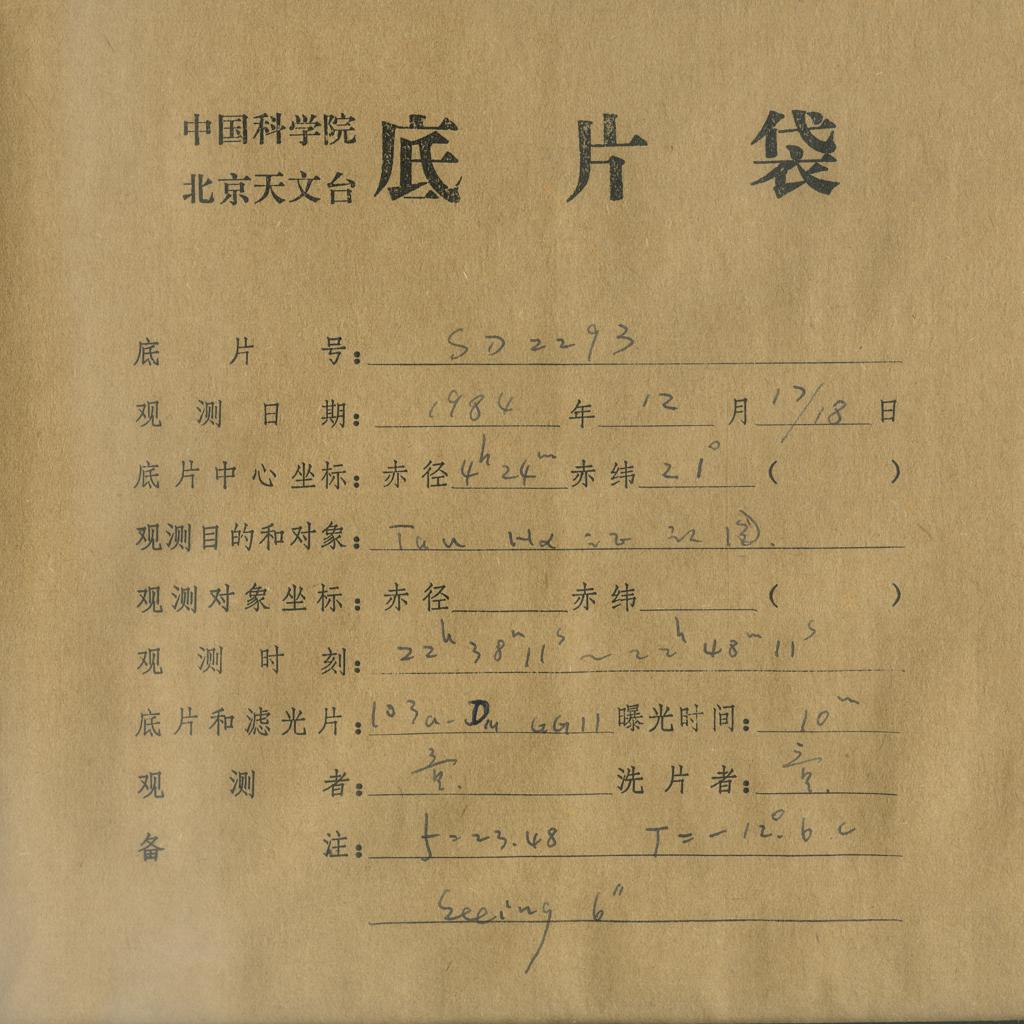 中国科学院
北京天文台 底片袋
底片号: SD2293
观测日期: 1984 年 12 月 17/18 日
底片中心坐标: 赤径 4h 24m 赤纬 21° ( )
观测目的和对象: Tau Hα
观测对象坐标: 赤径 赤纬 ( )
观测时刻: 22h 38m 11s ~ 22h 48m 11s
底片和滤光片: 103a-D GG11 曝光时间: 10m
观测者: 洗片者:
备注: f=23.48 T=-12°.6 C
Seeing 6"